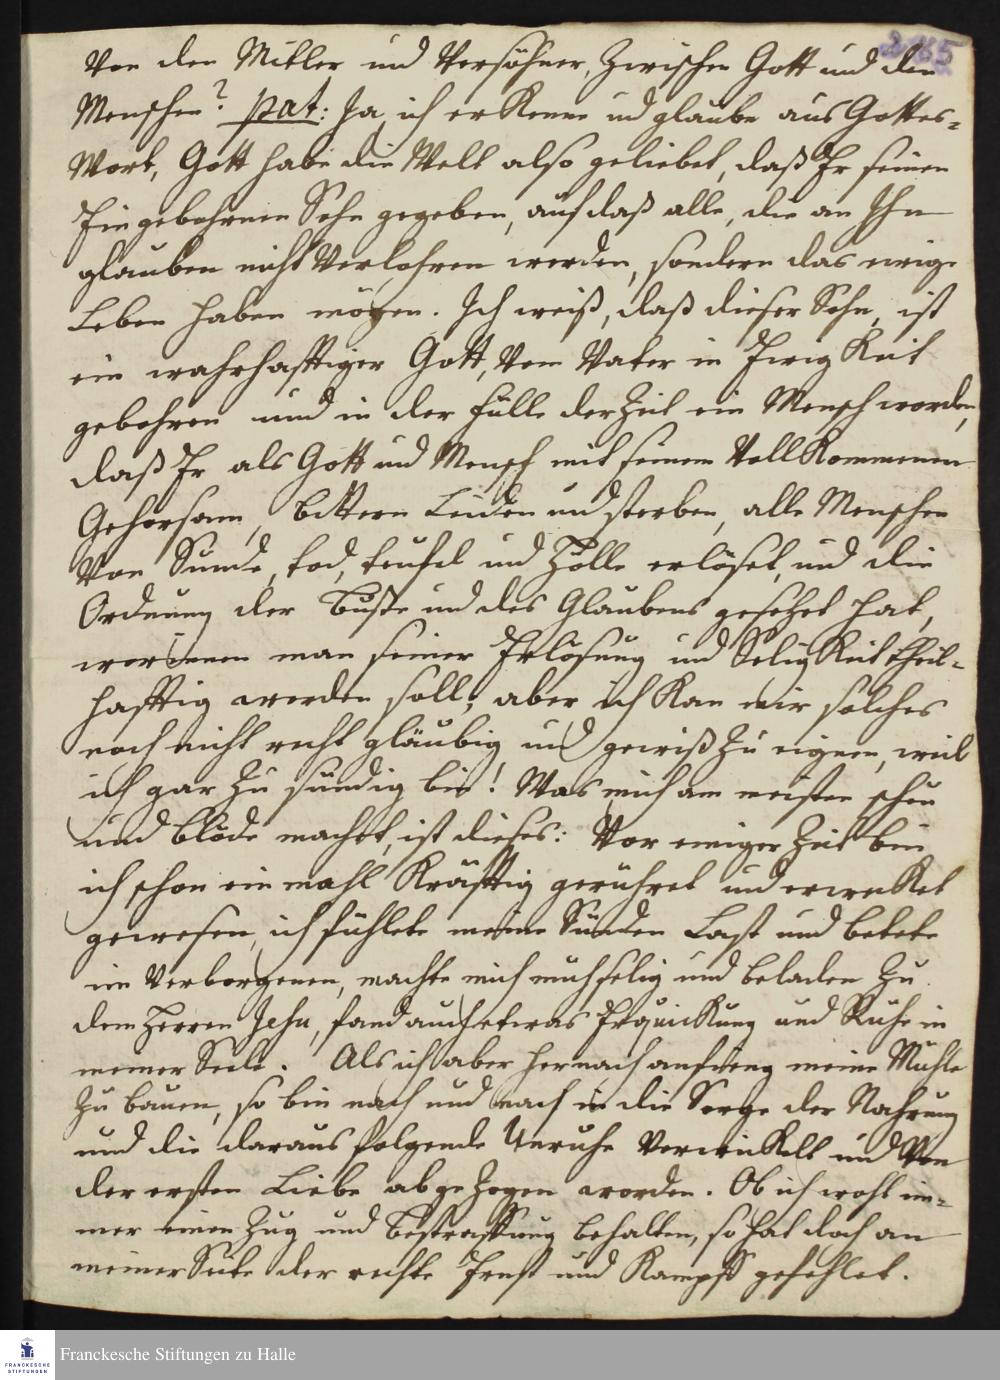 von dem Mitler und Versöhner, zwischen Gott und den
Menschen? pat: Ja, ich erkenne und glaube aus Gottes=
Wort, Gott habe die Welt also geliebet, daß Er seinen
Eingebohrnen Sohn gegeben, auf daß alle, die an Ihn
glauben nicht verlohren werden, sondern das ewige
Leben haben mögen. Ich weiß, daß dieser Sohn, ist
ein wahrhafftiger Gott, vom Vater in Ewigkeit
gebohren und in der Fülle der Zeit ein Mensch worden,
daß Er als Gott und Mensch mit seinem vollkommenen
Gehorsam, bittern Leiden und sterben, alle Menschen
von Sünde, tod, teufel und Hölle erlöset, und die
Ordnung der Buße und des Glaubens gesetzet hat,
worinnen man seiner Erlösung und Seligkeit theil=
hafftig werden soll; aber ich kan mir solches
noch nicht recht gläubig und gewiß zu eignen, weil
ich gar zu sündig bin! Was mich am meisten scheu
und blöde machet, ist dieses: Vor einiger Zeit bin
ich schon ein mahl kräfftig gerühret und erwecket
gewesen, ich fühlete meine Sünden Last und betete
im verborgenen, machte mich mühselig und beladen zu
dem Herren Jesu, fand auch etwas Erquickung und Ruhe in
meiner Seele. Als ich aber hernach anfieng meine Mühle
zu bauen, so bin nach und nach in die Sorge der Nahrung
und die daraus folgende Unruhe verwickelt und von
der ersten Liebe abgezogen worden. Ob ich wohl im=
mer einen Zug und Bestraffung behalten, so hat doch an
meiner Seite der rechte Ernst und Kampff gefehlet.
Franckesche Stiftungen zu Halle
FRANCKESCHE
STIFTUNGEN